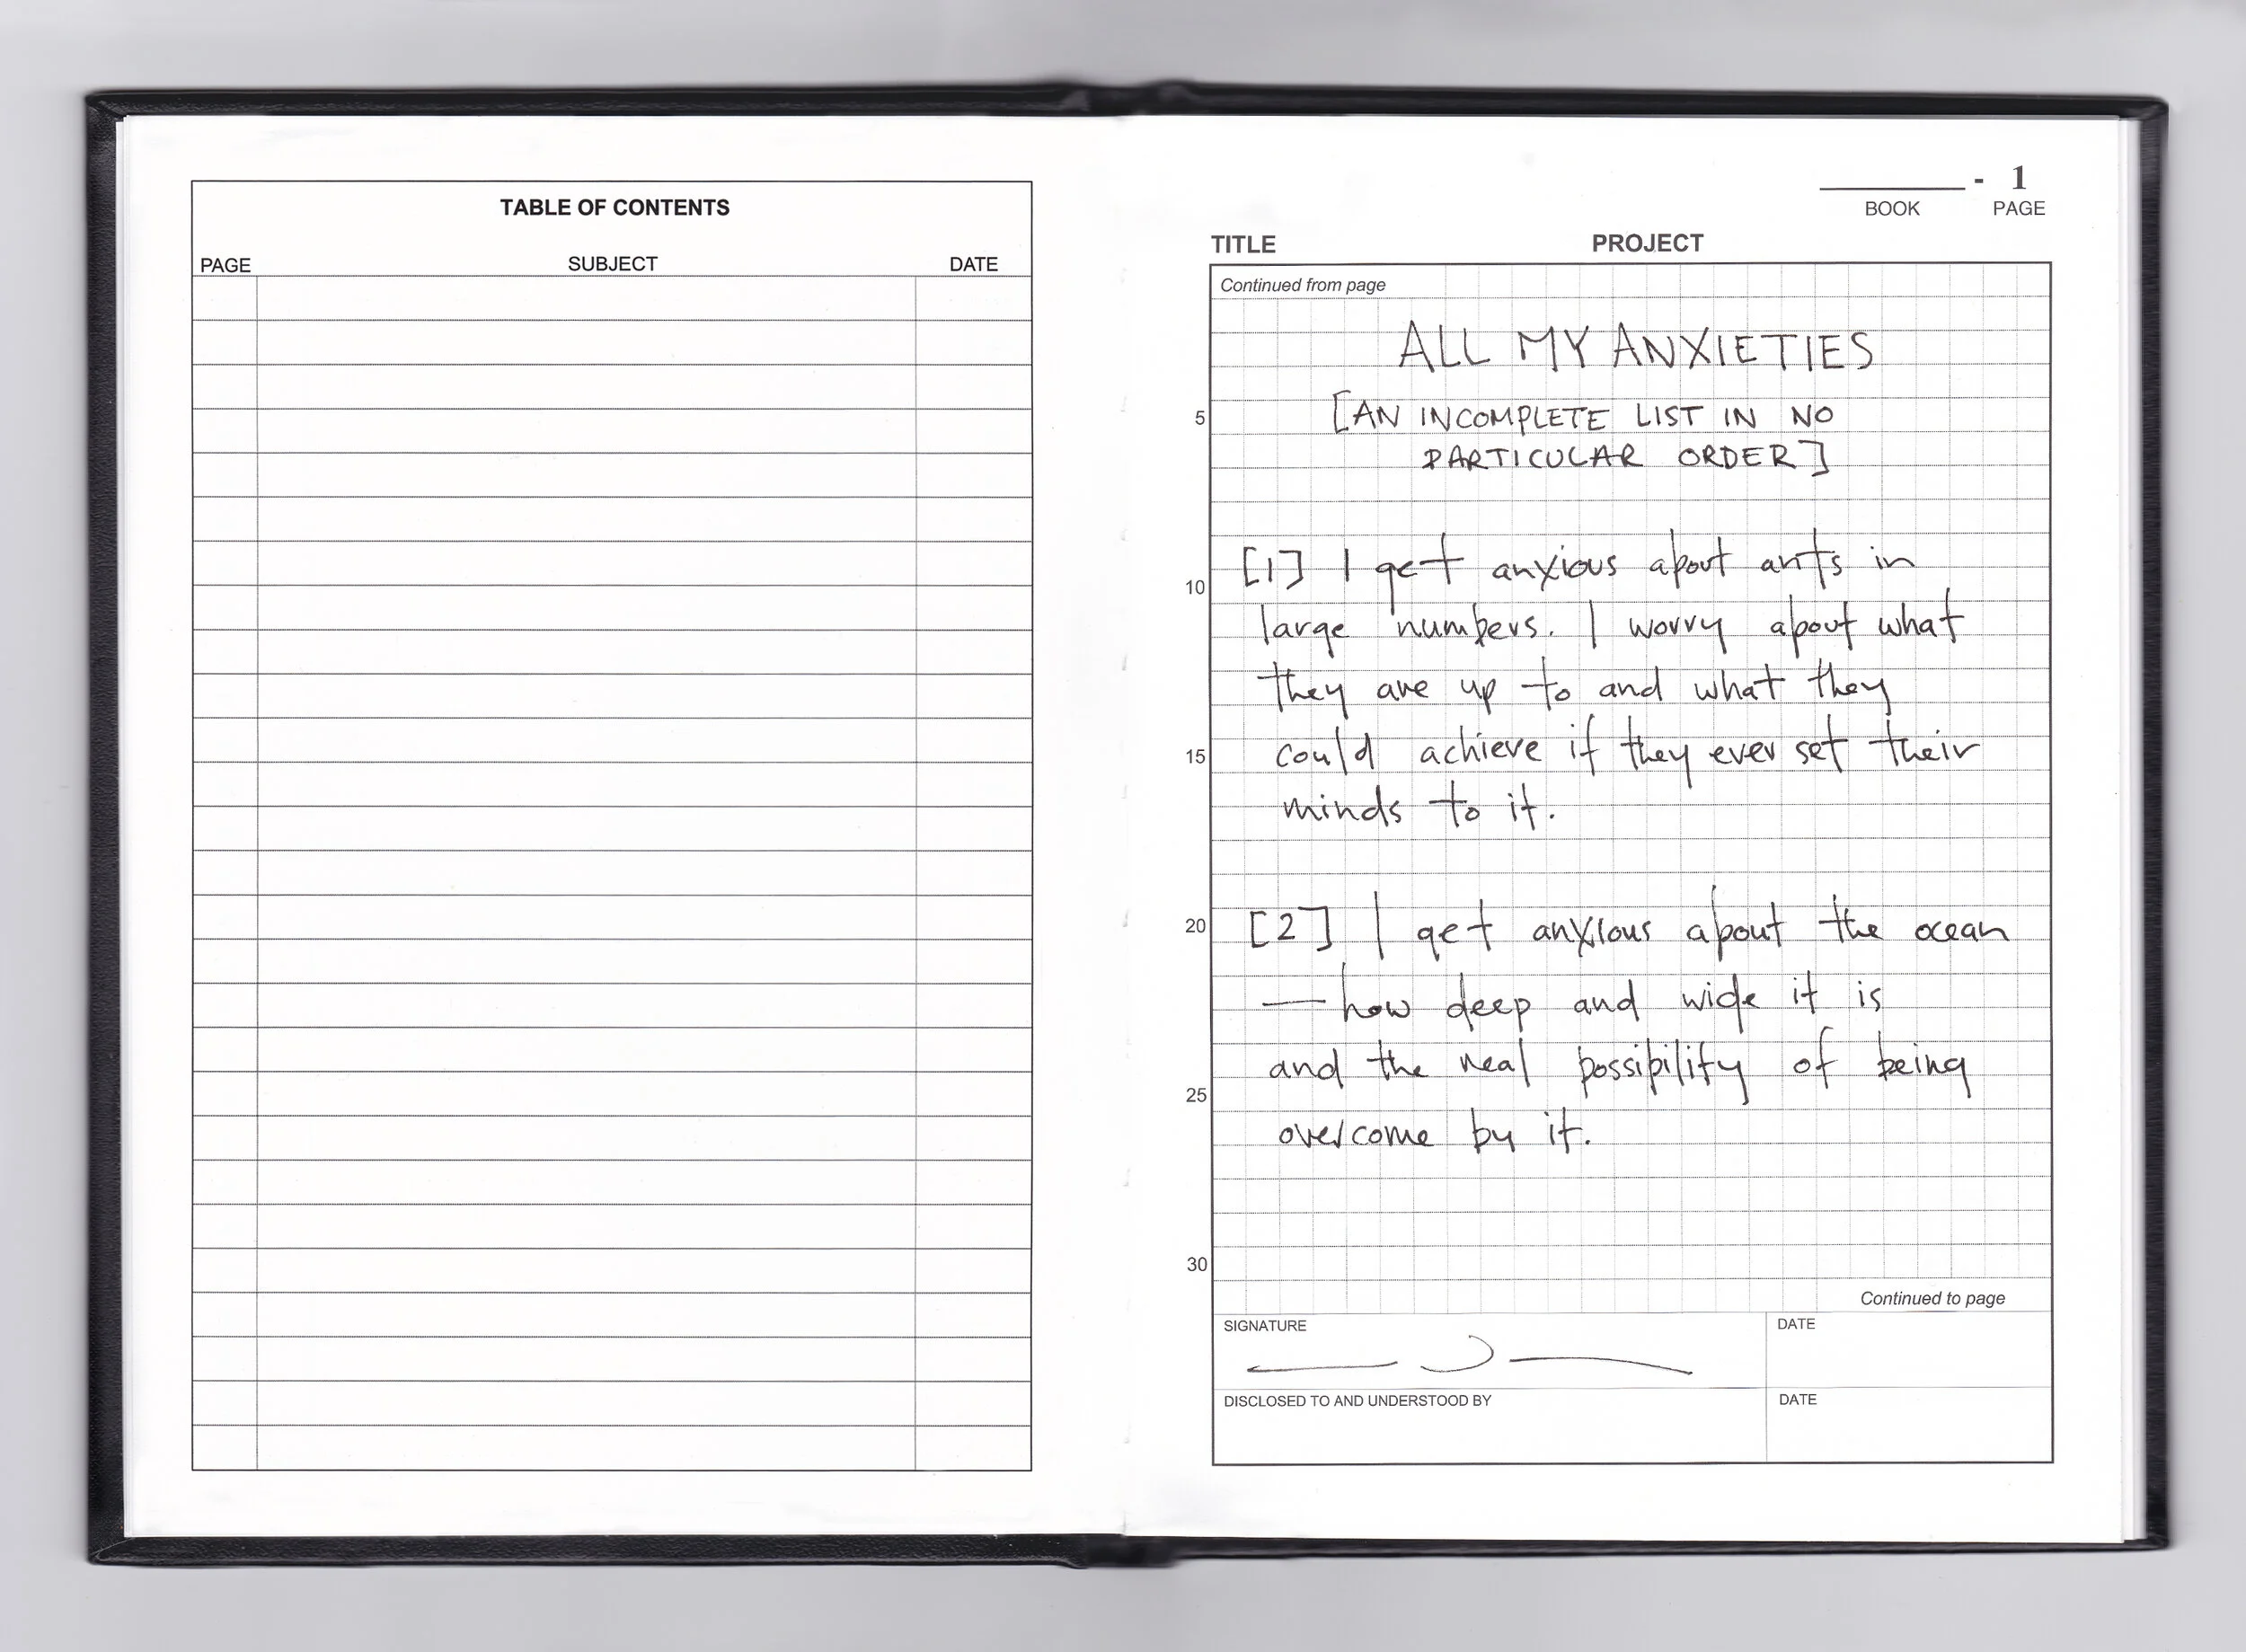 TABLE OF CONTENTS
PAGE SUBJECT DATE
BOOK - 1 PAGE
TITLE PROJECT
Continued from page
ALL MY ANXIETIES
[AN INCOMPLETE LIST IN NO
PARTICULAR ORDER]
5
[1] I get anxious about ants in
10
large numbers. I worry about what
they are up to and what they
could achieve if they ever set their
15
minds to it.
[2] I get anxious about the ocean
20
— how deep and wide it is
and the real possibility of being
25
overcome by it.
30
Continued to page
SIGNATURE DATE
DISCLOSED TO AND UNDERSTOOD BY DATE